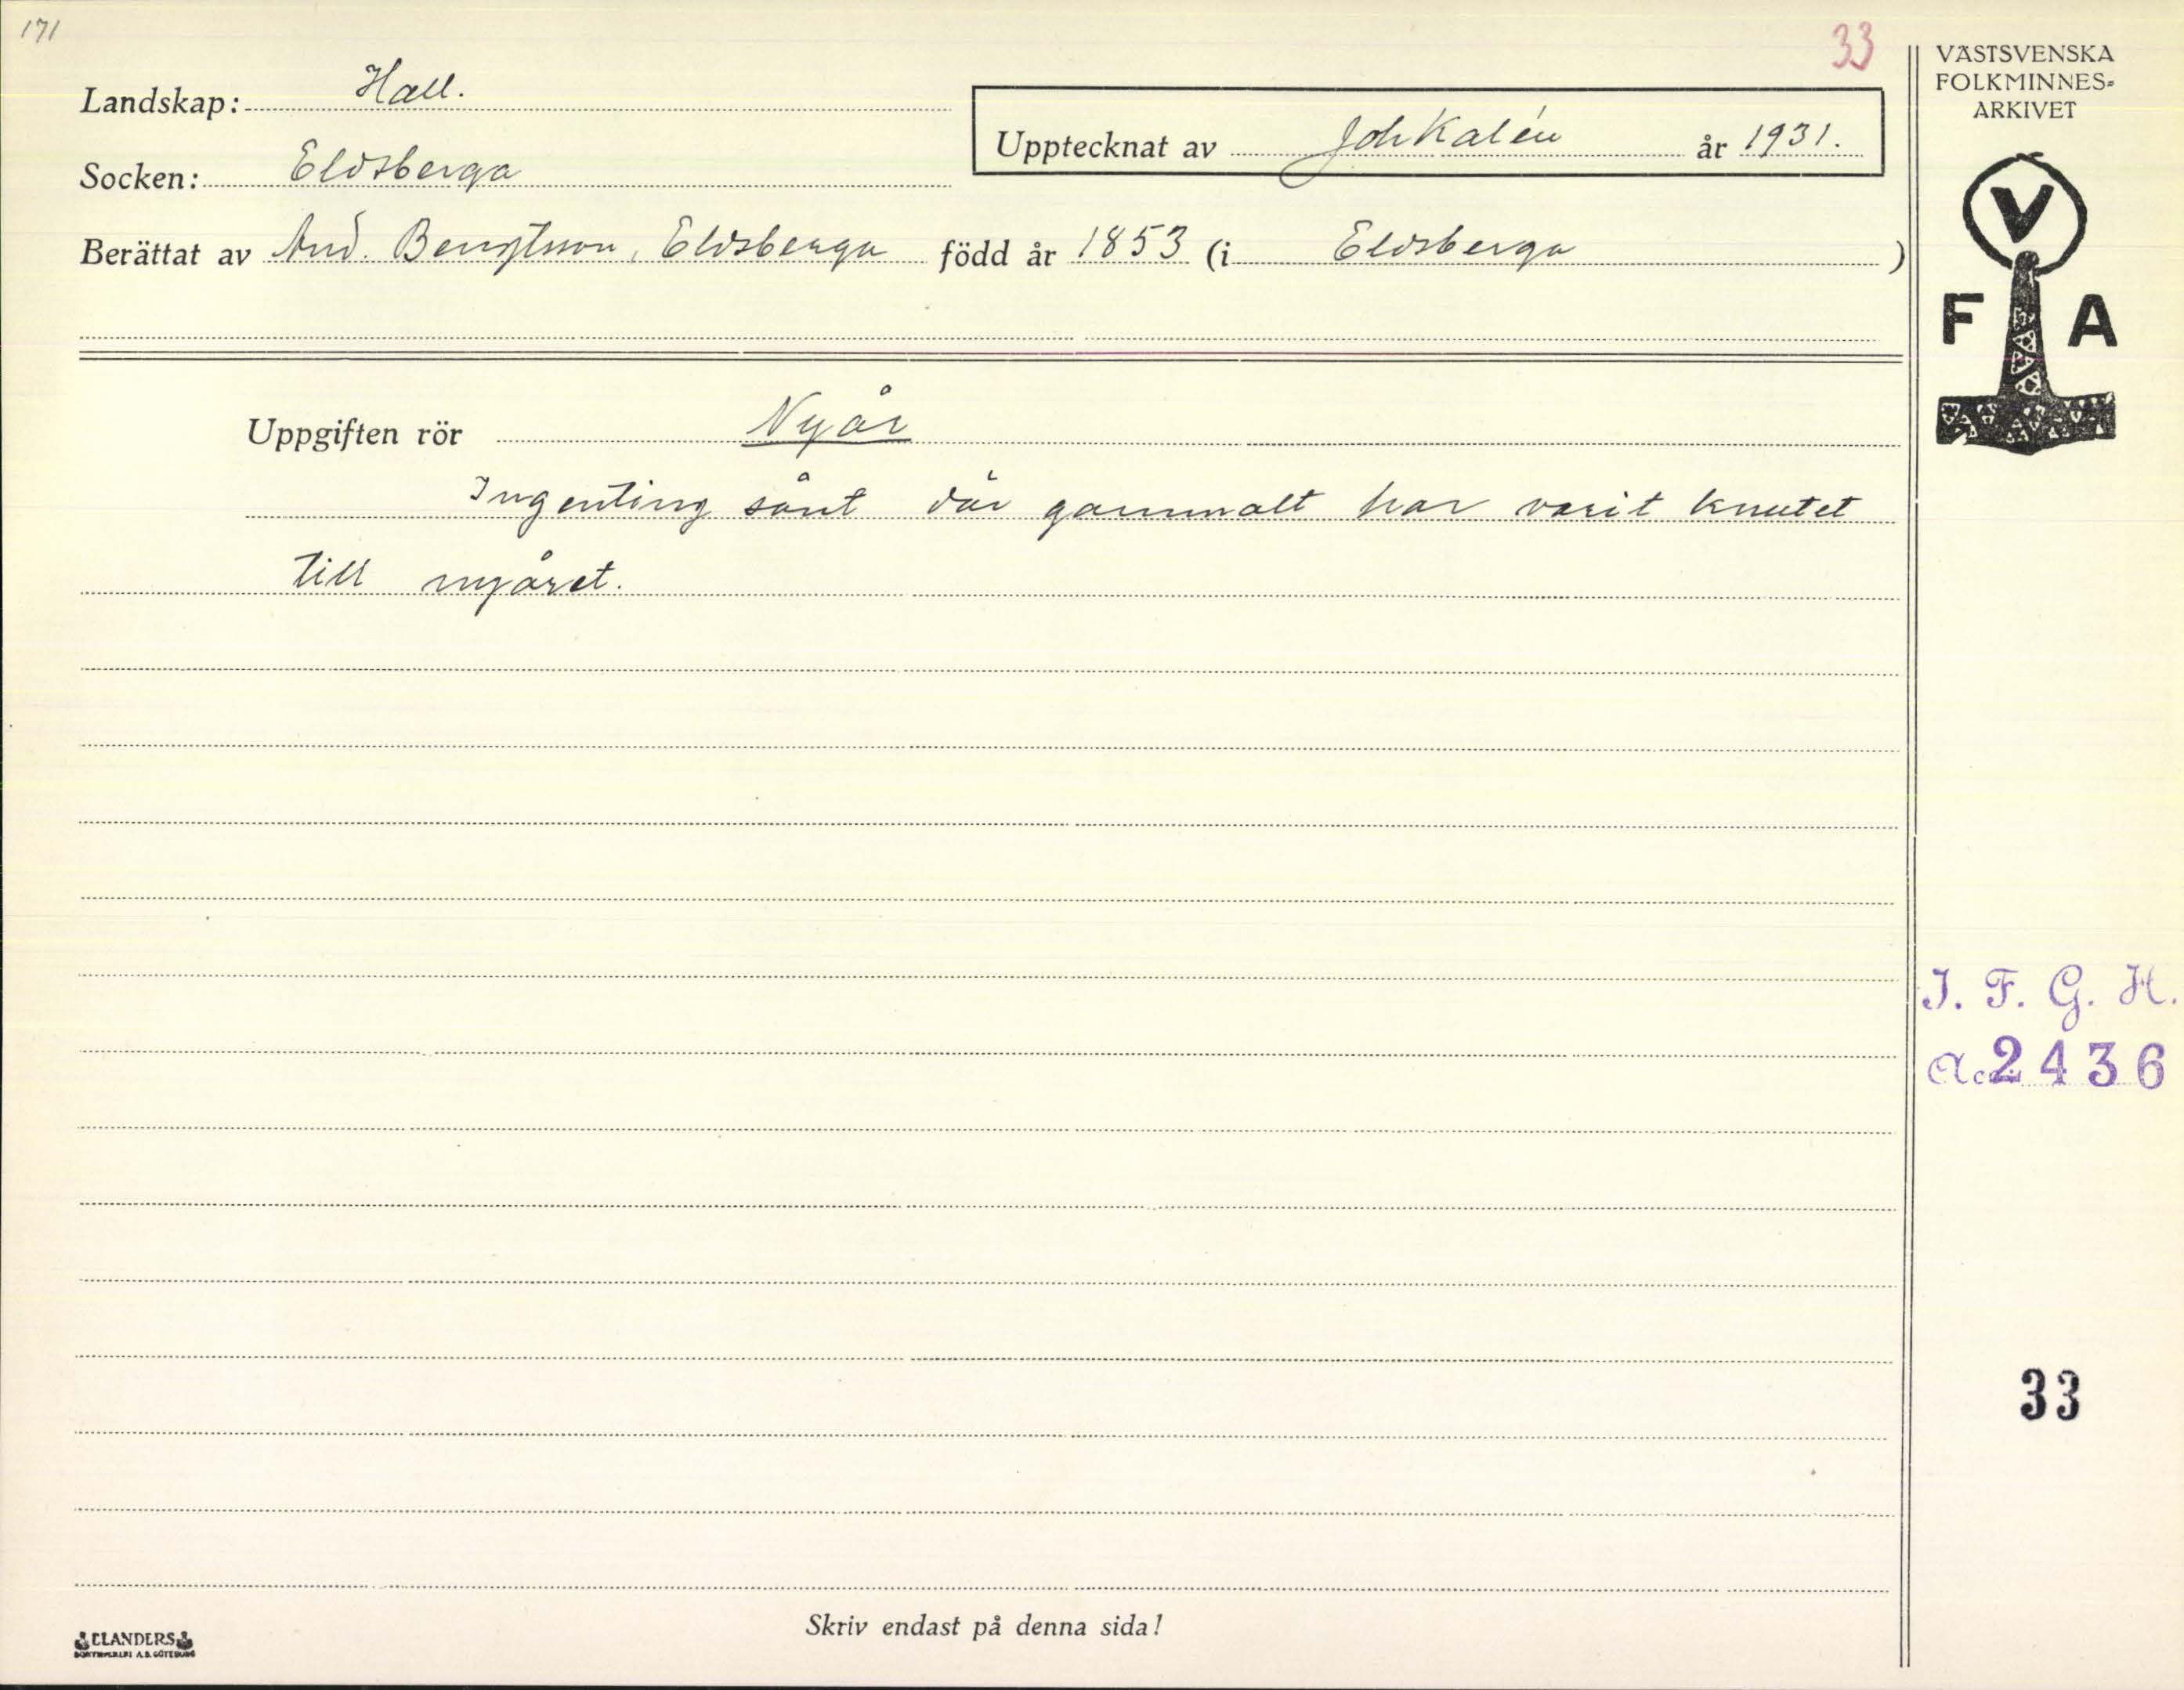 171
33
Landskap: Hall.
Socken: Eldsberga
Upptecknat av Joh Kalén år 1931.
Berättat av And. Bengtsson, Eldsberga född år 1853 (i Eldsberga )
Uppgiften rör Nyår
Ingenting sånt där gammalt har varit knutet
till nyåret.
Skriv endast på denna sida!
ELANDERS
VÄSTSVENSKA
FOLKMINNES-
ARKIVET
V
F A
I. F. G. H.
Acc. 2436
33